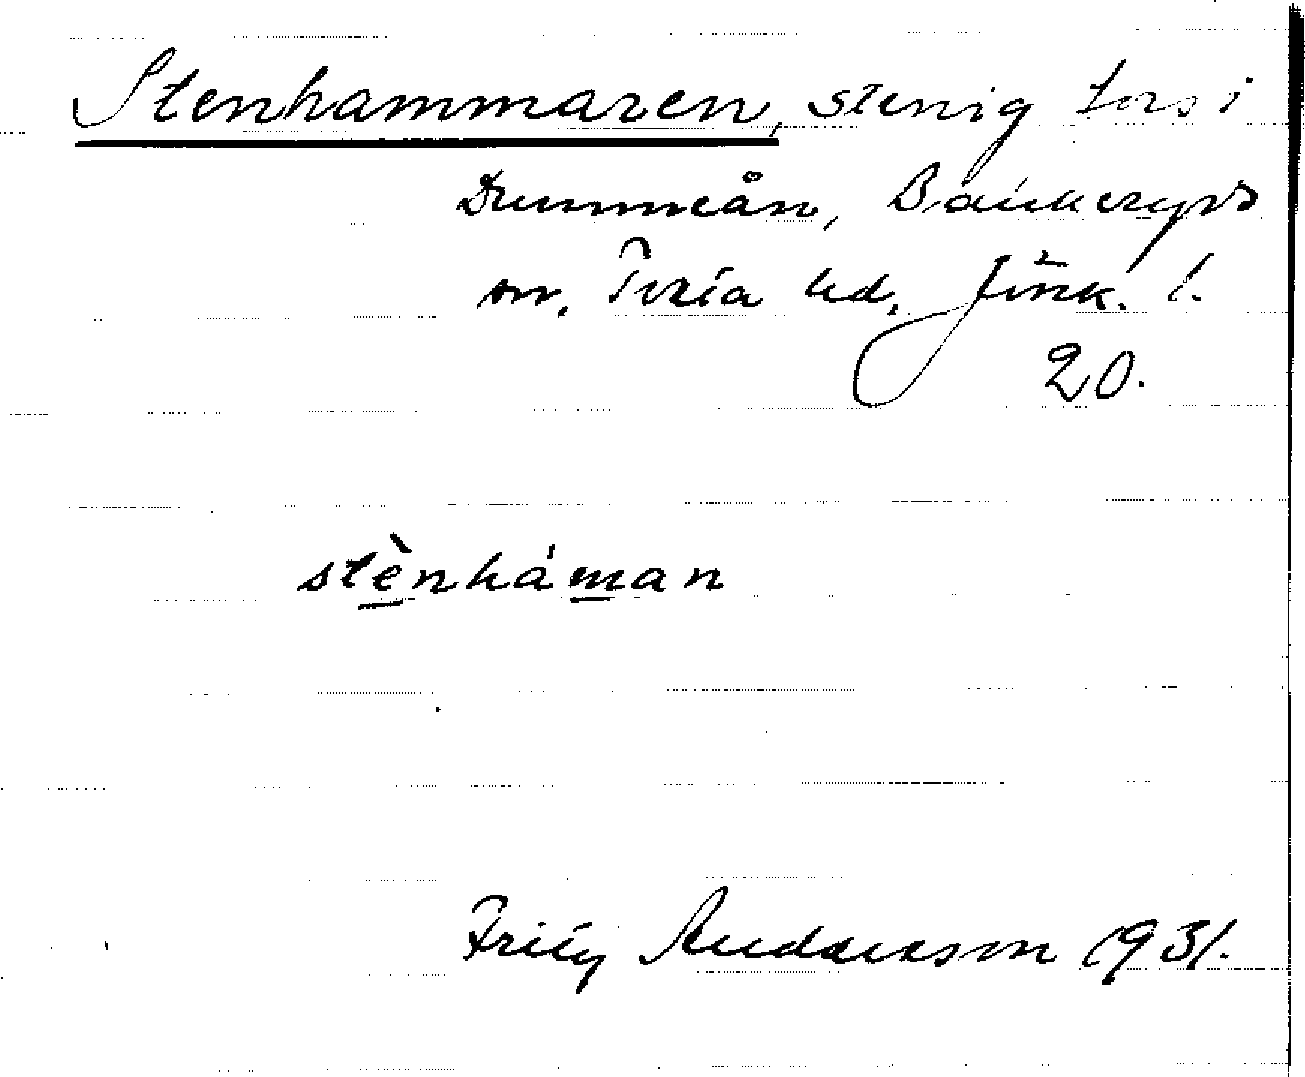 Stenhammaren, stenig fors i
Dummeån, Bankeryds
sn, Tveta hd, Jönk. l.
20.
stènháman
Fritz Andersson 1931.